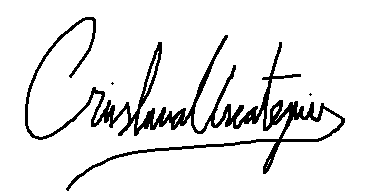 Crislaval Uscategui